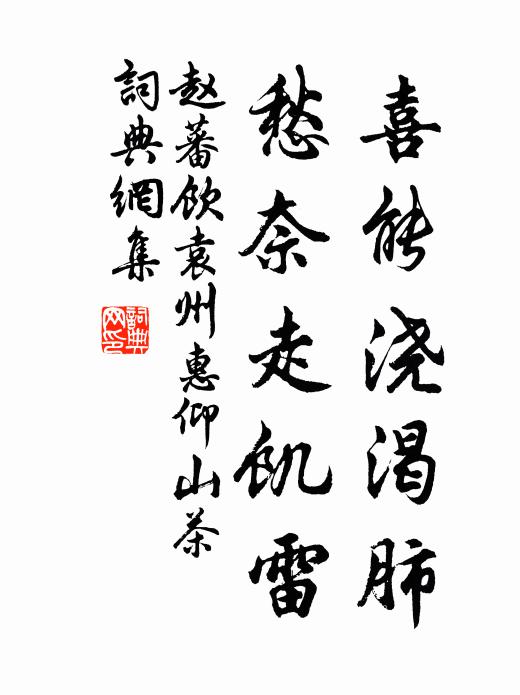 喜能浇渴肺
愁奈走饥雷
赵蕃饮袁州惠仰山茶
詞典網集
詞典网印